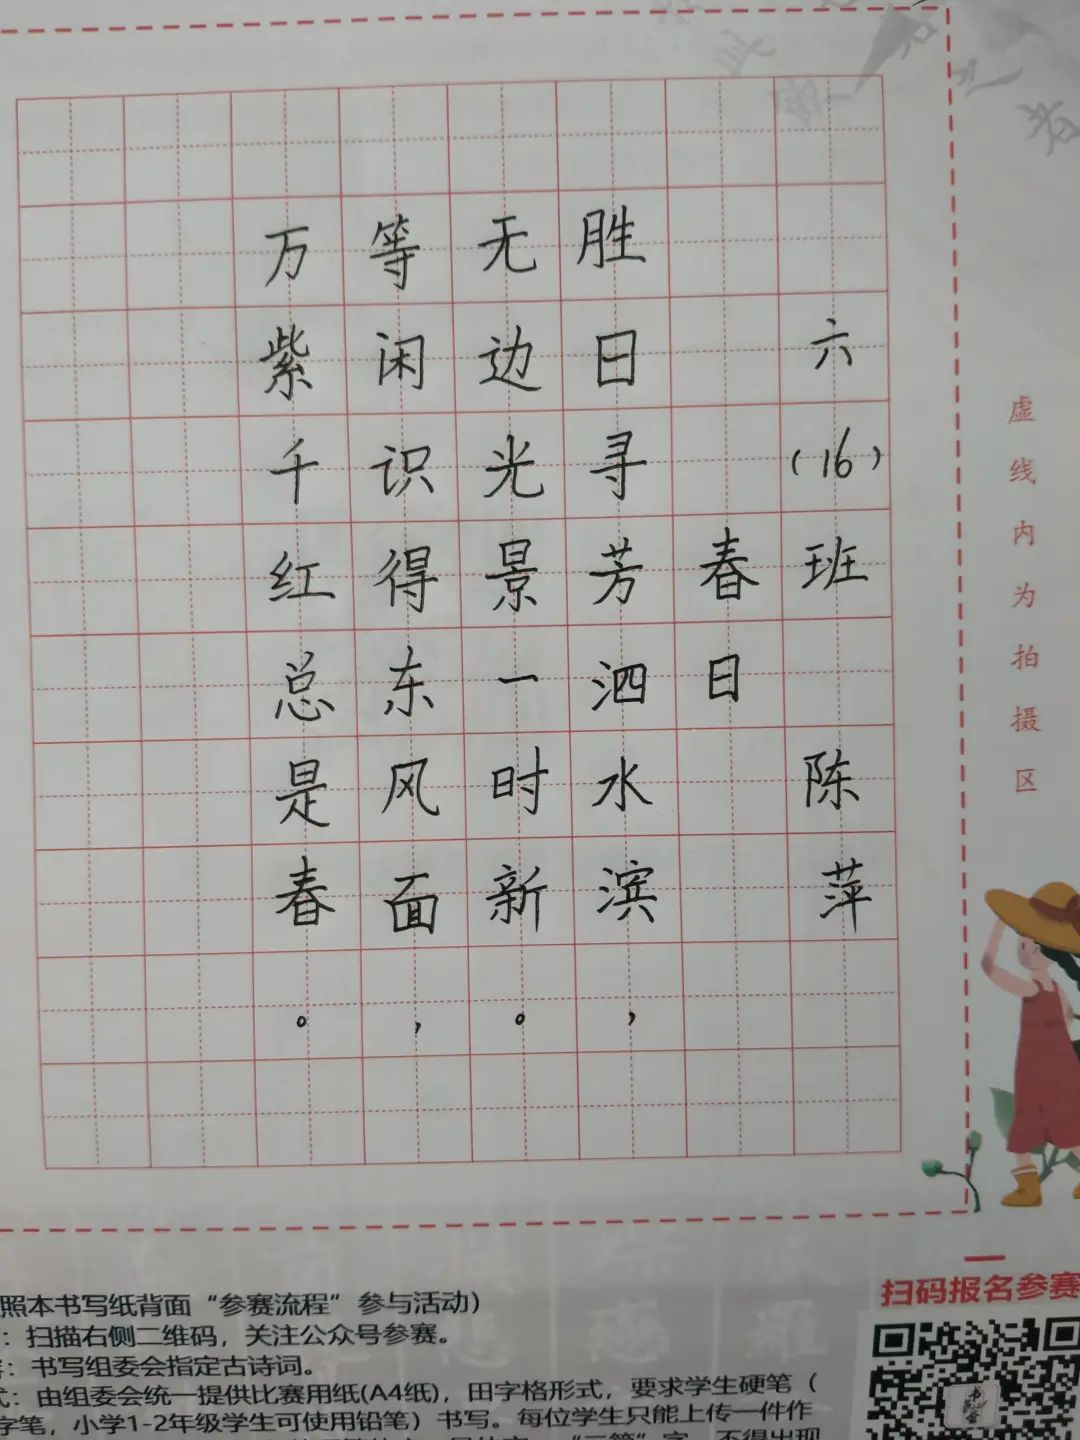 六（16）班 陈萍
春日
胜日寻芳泗水滨，
无边光景一时新。
等闲识得东风面，
万紫千红总是春。
虚线内为拍摄区
扫码报名参赛
照本书写纸背面“参赛流程”参与活动）
：扫描右侧二维码，关注公众号参赛。
：书写组委会指定古诗词。
式：由组委会统一提供比赛用纸(A4纸)，田字格形式，要求学生硬笔（
字笔，小学1-2年级学生可使用铅笔）书写。每位学生只能上传一件作